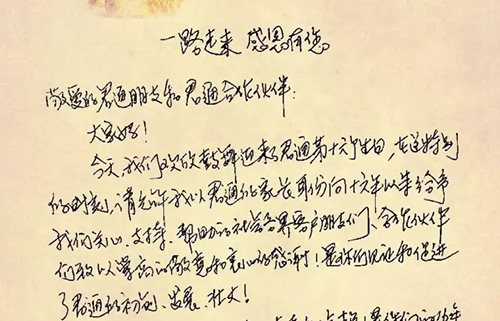 一路走来 感恩有您
敬爱的君通朋友和君通合作伙伴：
大家好！
今天，我们欢欣鼓舞迎来了君通第十六个生日，在这特别
的时刻，请允许我以君通的家长身份向十六年以来给予
我们关心、支持、帮助的社会各界客户朋友们、合作伙伴
们致以崇高的敬意和衷心的感谢！是你们见证和促进
了君通的初创、发展、壮大！